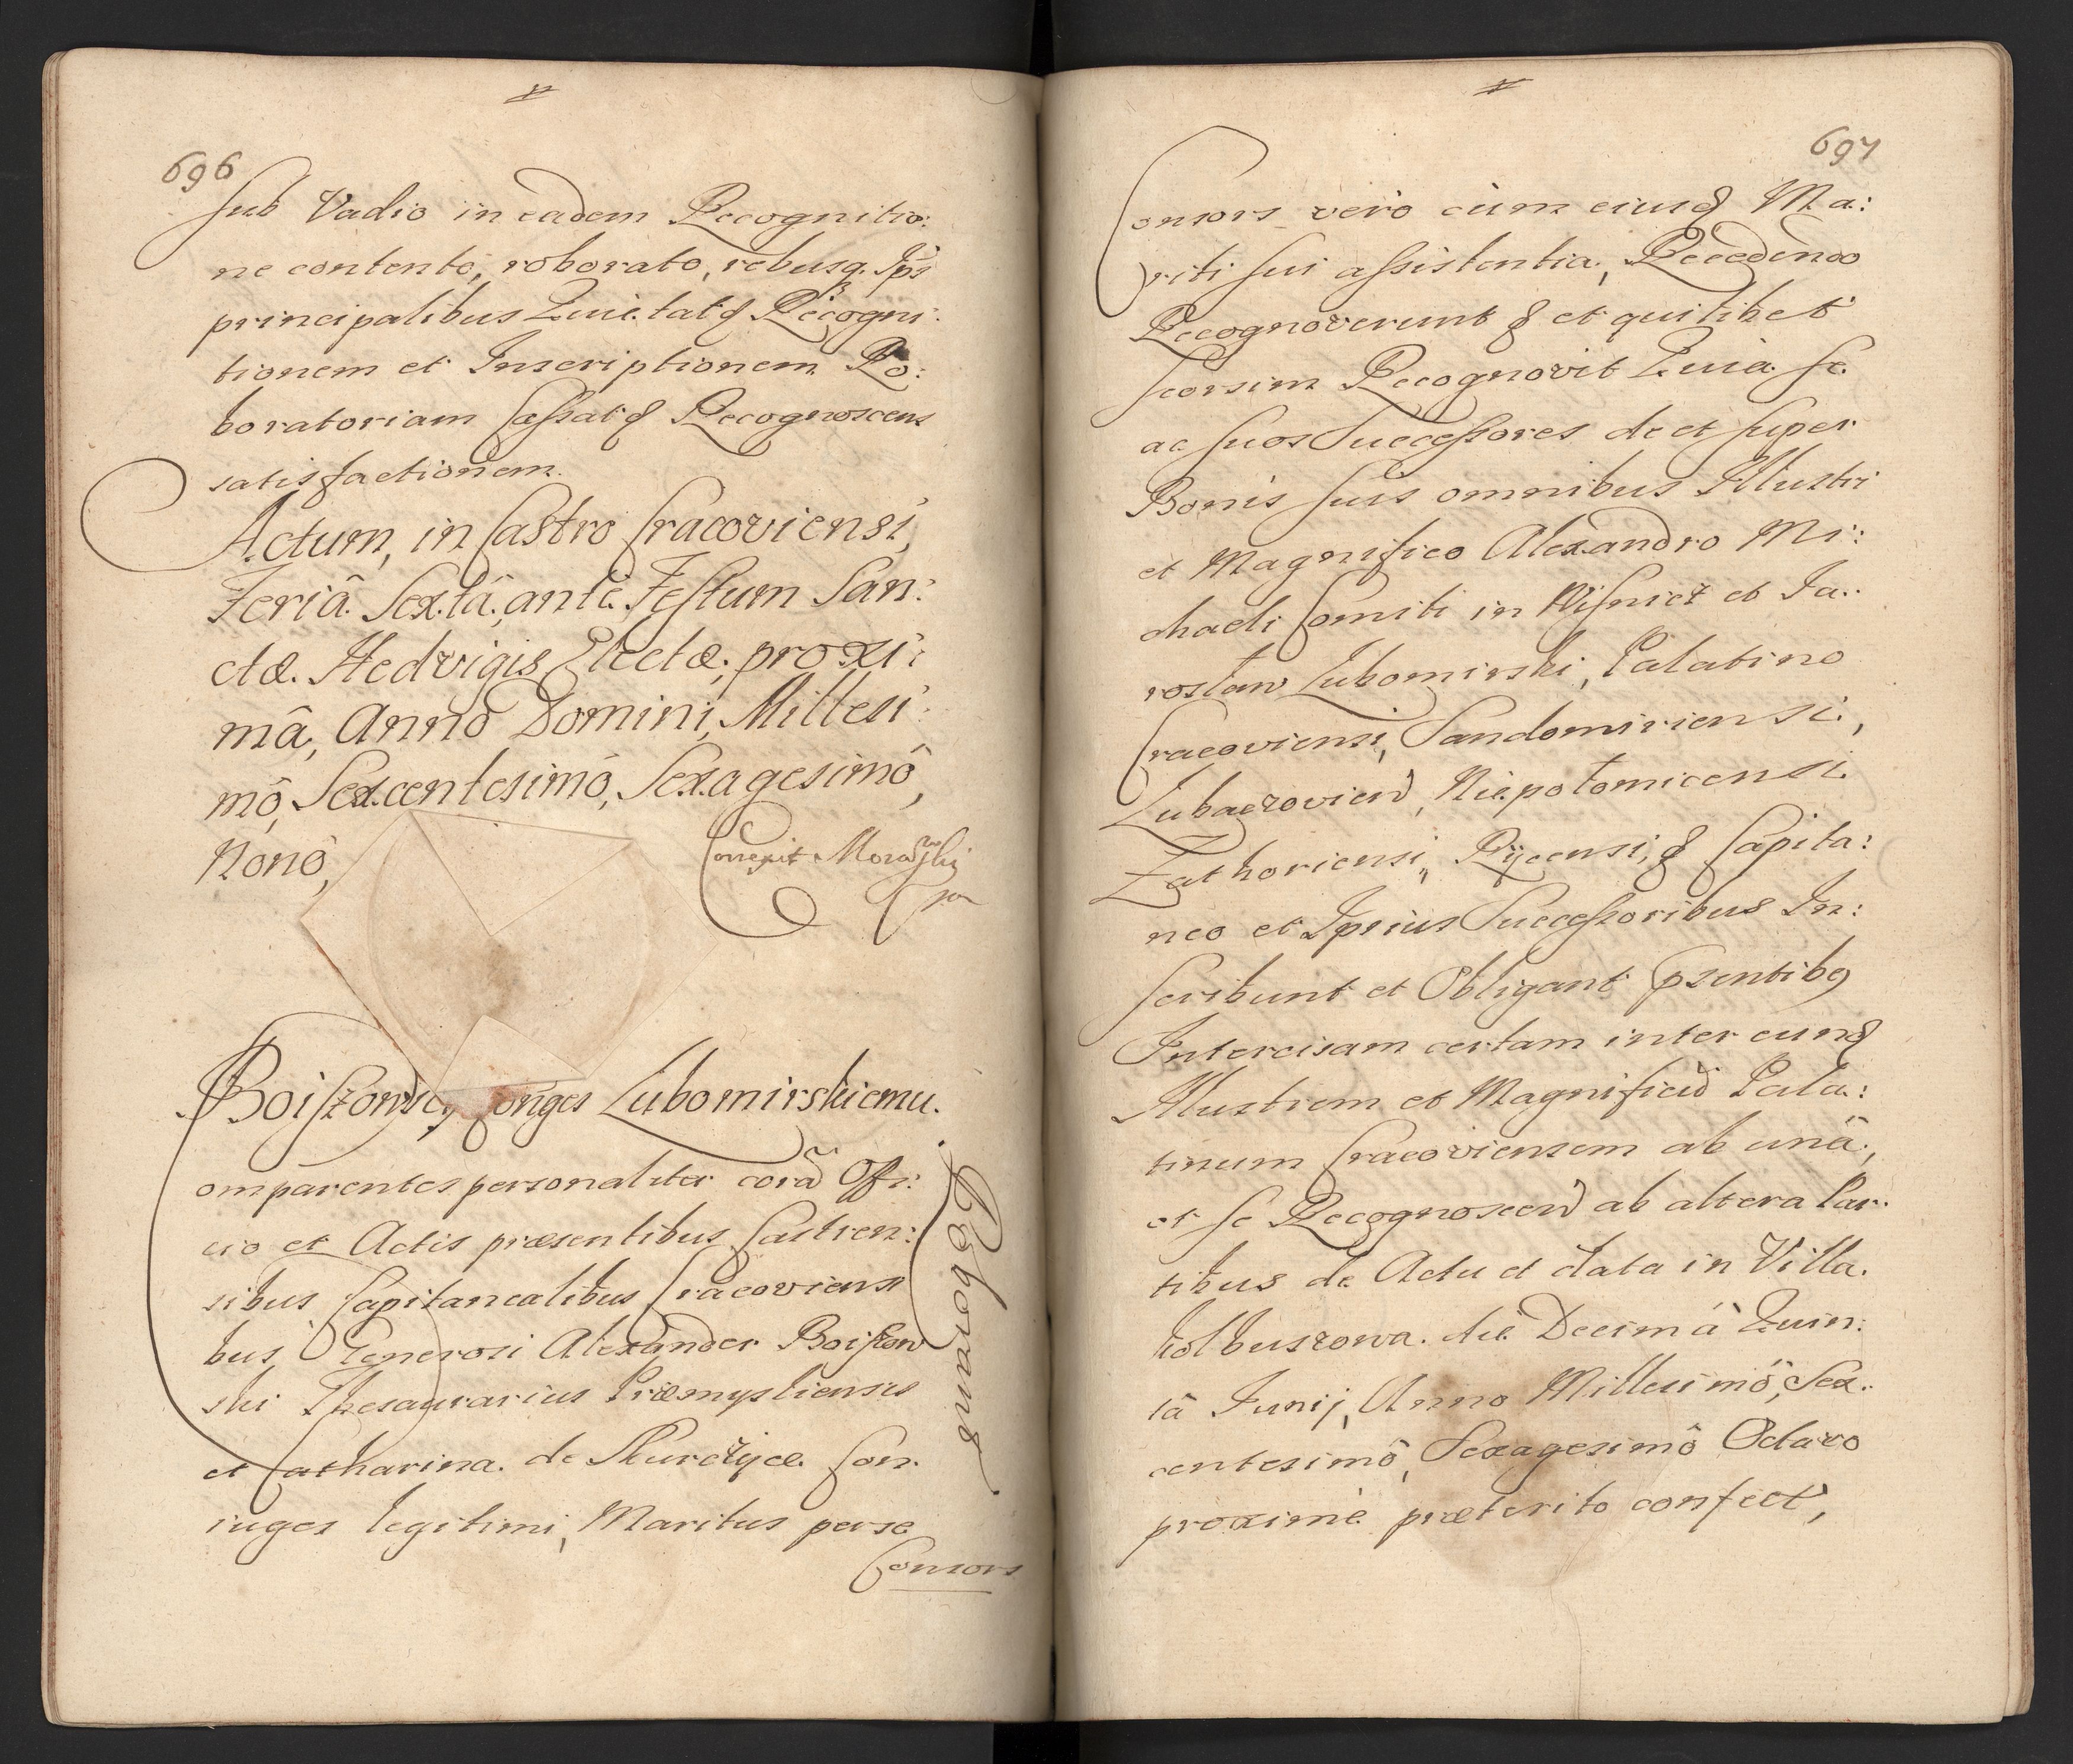 696
sub Vadio in eadem Recognitio:
ne contento, roborato, rebusq. Ips
principalibus Quietatq Recogni:
tionem et Inscriptionem Ro:
boratoriam Cassatq Recognoscens
satisfactionem.
Actum, in Castro Cracoviensi,
Feriâ Sextâ, ante Festum San:
ctæ Hedvigis Electæ, proxi:
mâ, Anno Domini, Millesi:
mô, Sexcentesimô, Sexagesimô,
Nonô,
Correxit Moraskj
Boiszowscy Conges Lubomirskiemu.
Comparentes personaliter corã Offi:
cio et Actis præsentibus Castren:
sibus Capitanealibus Cracoviens
bus, Generosi Alexander Boiszow
ski Thesaurarius Præmysliensis
et Catharina de Skurczyce Con:
iuges legitimi, Maritus per se
Consors
Roborang
697
Consors verò cùm eiusq Ma:
riti sui assistentia, Recedendo
Recognoverunt q et quilibet
seorsim Recognovit Quia se
ac suos Successores de et super
Bonis suis omnibus Illustri
et Magnifico Alexandro Mi:
chaeli Comiti in Wisnicz et Ja:
rosław Lubomirski, Palatino
Cracoviensi, Sandomiriensi,
Lubaczovien, Niepołomicensi
Zathoriensi, Ryccensi, q Capita:
neo et Ipsius Successoribus In:
scribunt et Obligant psentibq
Intercisam certam inter eunq
Illustrem et Magnificũ Pala:
tinum Cracoviensem ab unâ,
et se Recognoscen ab altera Par:
tibus de Actu et data in Villa
Kolbuszowa die Decimâ Quin:
tâ Junij, Anno Millesimô, Sex:
centesimô, Sexagesimô Octavo
proximè præterito confect,